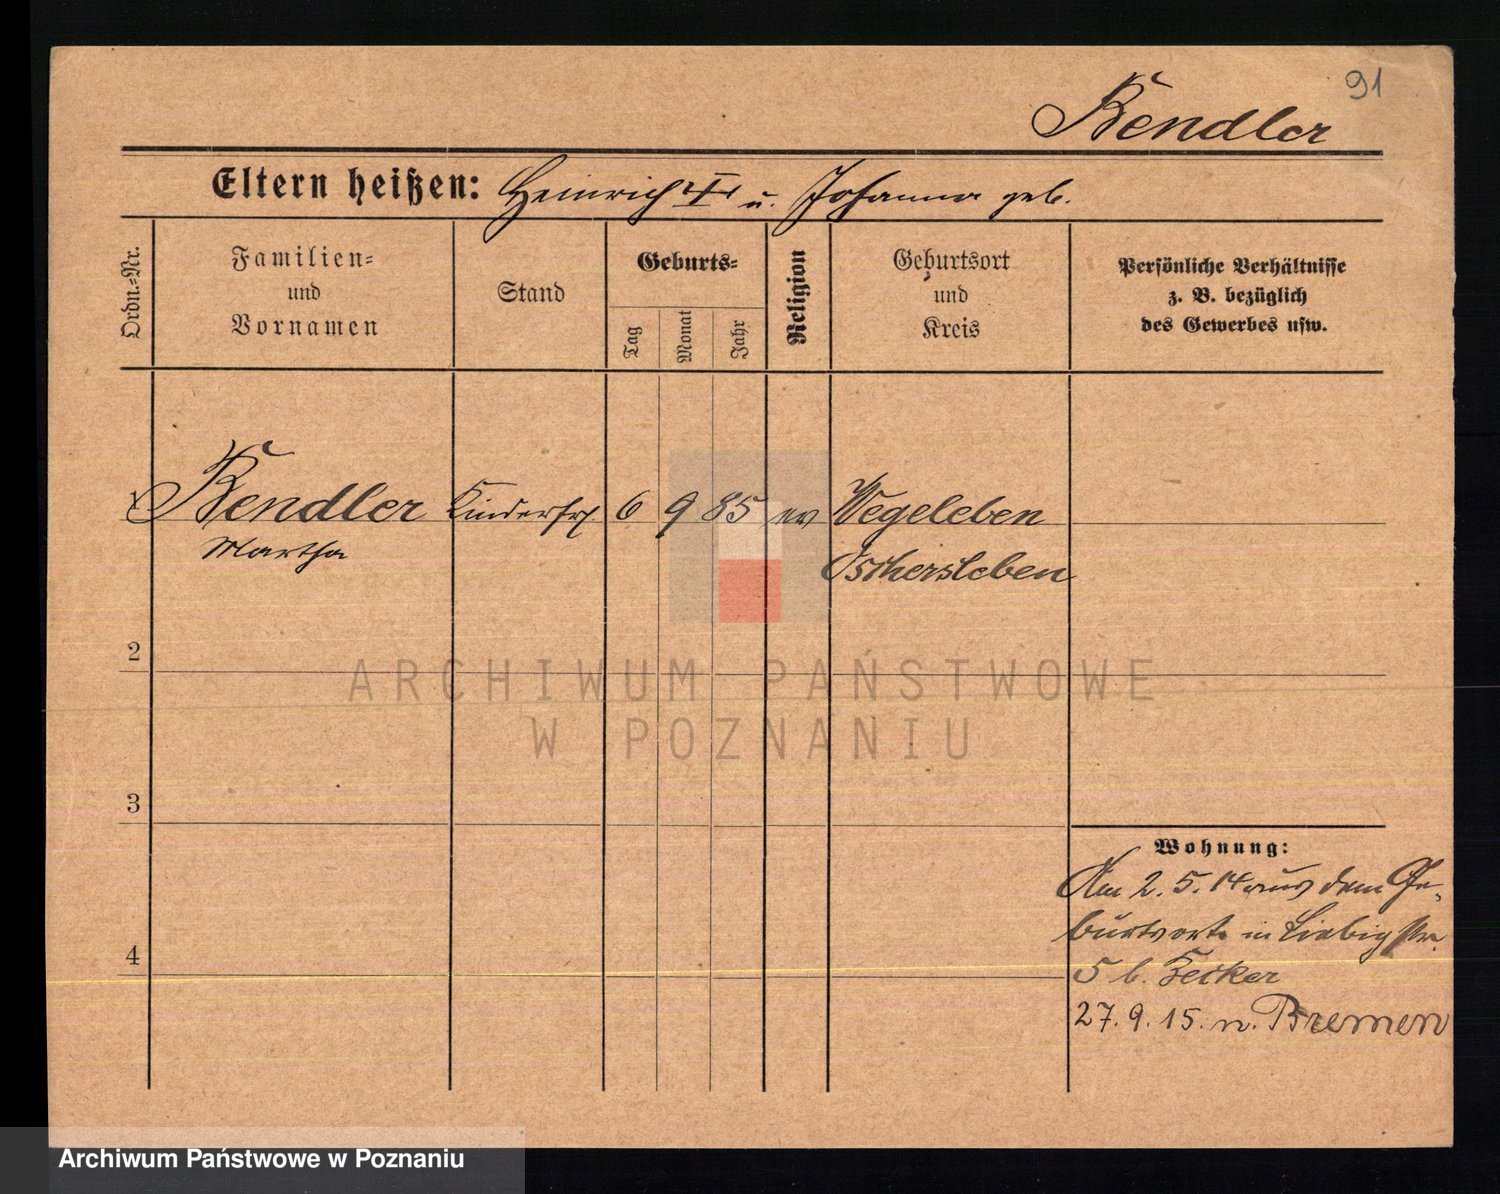 91
Kendler
Eltern heißen: Heinrich u. Johanna geb.
Ordn.-Nr.
Familien-
und
Vornamen
Stand
Geburts-
Tag
Monat
Jahr
Religion
Geburtsort
und
Kreis
Persönliche Verhältnisse
z. B. bezüglich
des Gewerbes usw.
1 Kendler Kinderfrl. 6 9 85 ev Wegeleben
Martha Oschersleben
2
ARCHIWUM PAŃSTWOWE
W POZNANIU
3
Wohnung:
Am 2. 5. 14 aus dem Ge-
burtsorte in Liebigstr.
4
5 b.
27. 9. 15. n. Bremen
Archiwum Państwowe w Poznaniu